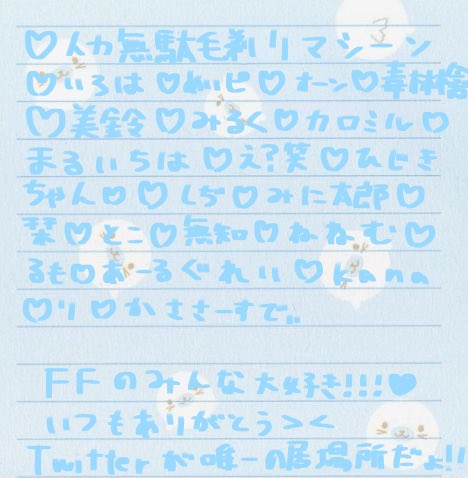 3
♡人力無駄毛剃りマシーン
♡いろは♡めいピ♡オーン♡春林檎
♡美鈴♡みるく♡カロミル♡
まるいちは♡え?笑♡ひじき
ちゃん♡♡しぢ♡みに太郎♡
栞♡とこ♡無知♡ねねむ♡
るも♡あーるぐれい♡kana
♡り♡かささーすで..
FFのみんな大好き!!!♥
いつもありがとう><
Twitterが唯一の居場所だよ!!